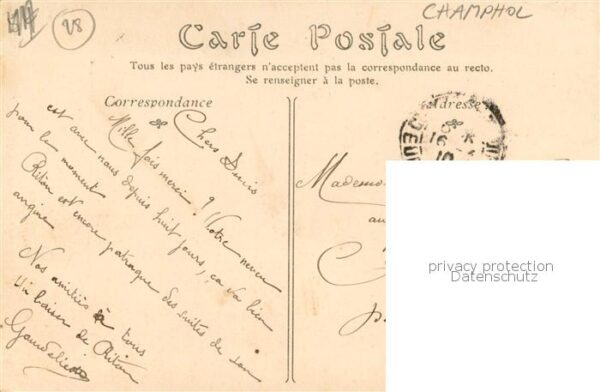 28
CHAMPHOL
Carte Postale
Tous les pays étrangers n'acceptent pas la correspondance au recto.
Se renseigner à la poste.
Correspondance
Adresse
Chers Amis
Mille fois merci ! Votre neveu
est avec nous depuis huit jours, ça va bien
pour le moment
Riton est encore patraque des suites de son
angine
Nos amitiés à tous
Un baiser de Riton
Mademo
au
privacy protection
Datenschutz